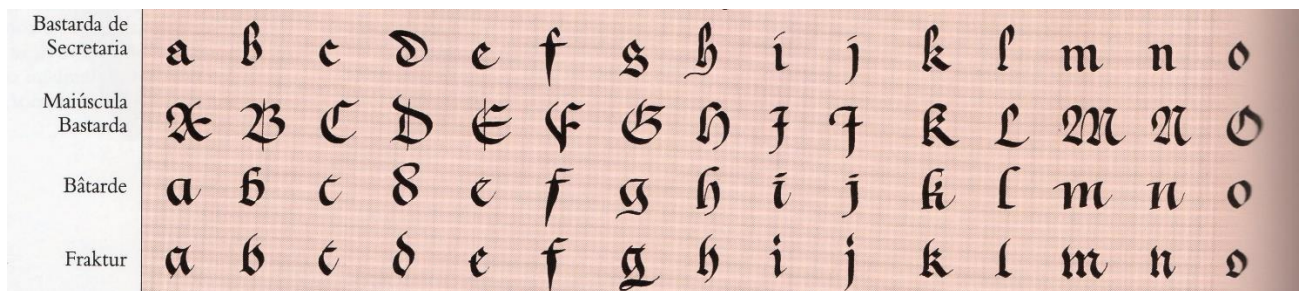 Bastarda de
Secretaria a b c d e f s h i j k l m n o
Maiúscula
Bastarda A B C D E F G H I J K L M N O
Bâtarde a b c d e f g h i j k l m n o
Fraktur a b c d e f g h i j k l m n o